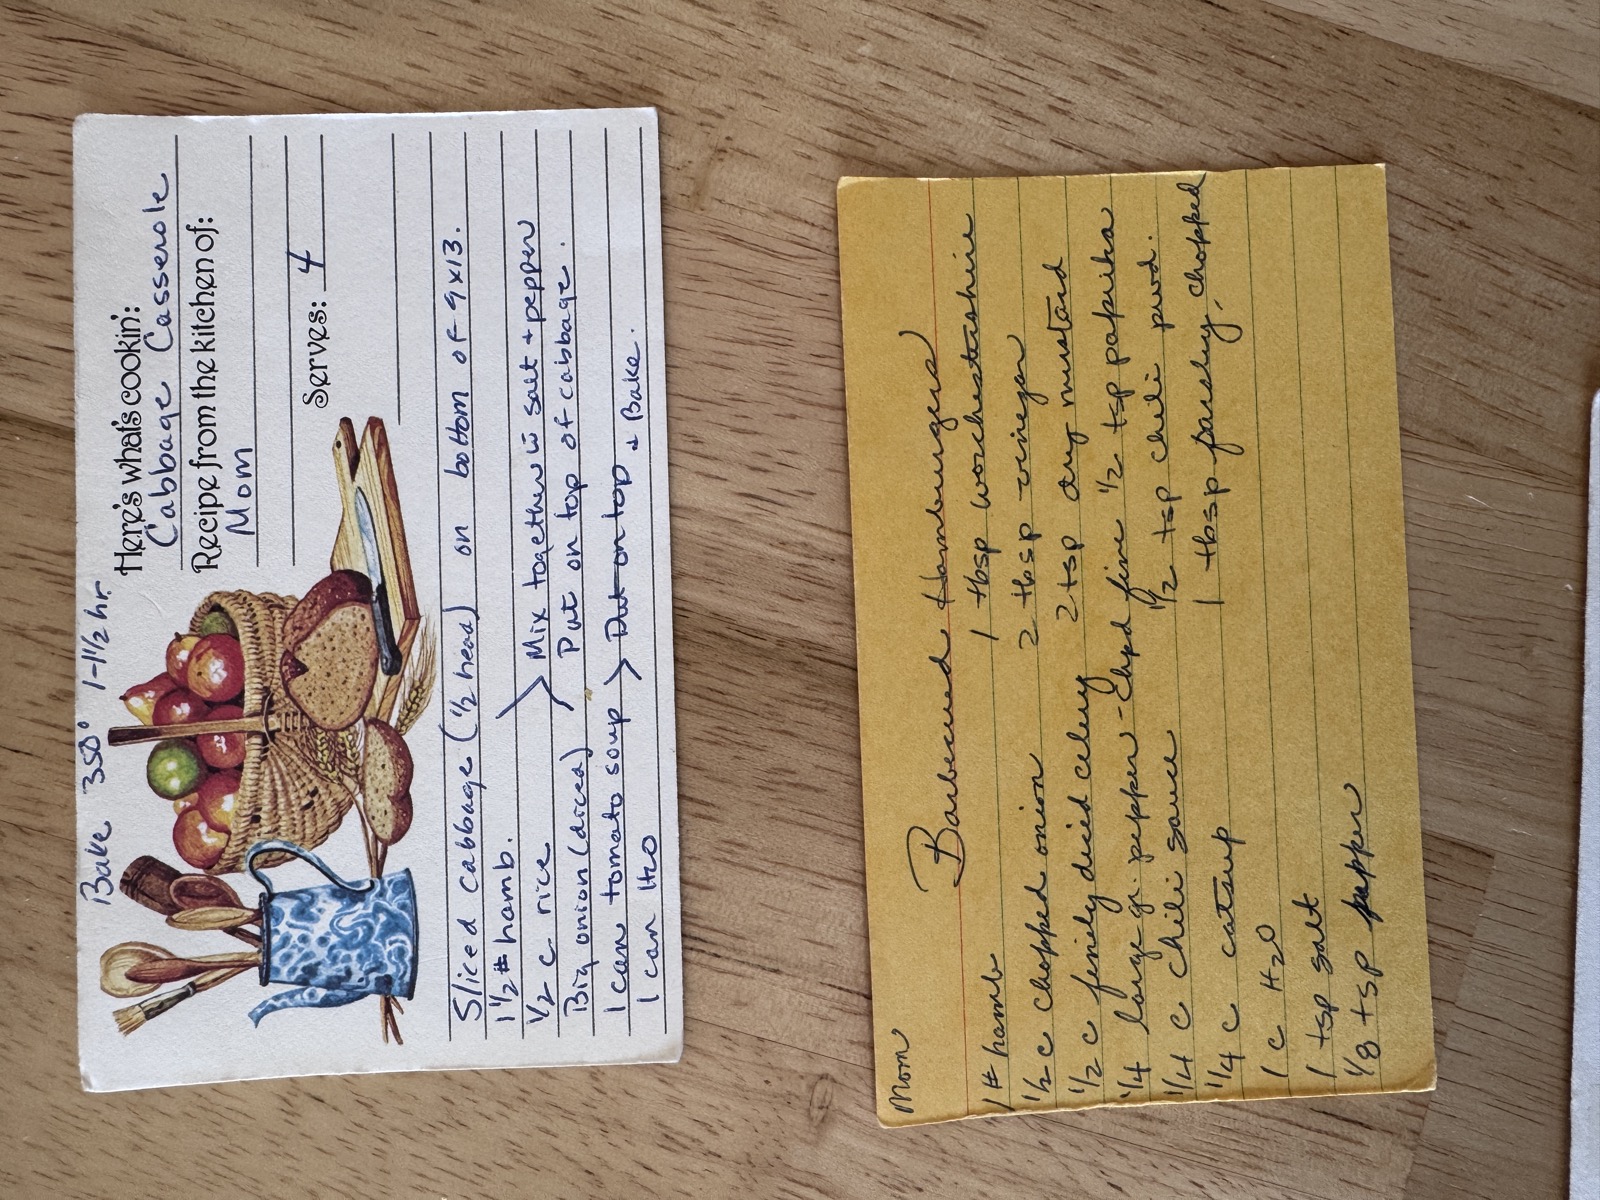 Bake 350° 1-1½ hr.
Here's what's cookin':
Cabbage Casserole
Recipe from the kitchen of:
Mom
Serves: 4
Sliced cabbage (½ head) on bottom of 9x13.
1½ # hamb.
½ c rice
Mix together w salt + pepper
Big onion (diced)
Put on top of cabbage.
1 can tomato soup
Put on top + Bake.
1 can H2O
Mom
Barbecued Hamburgers
1 # hamb
½ c chopped onion
½ c finely diced celery
¼ large gr. pepper - Chpd fine
¼ c chili sauce
¼ c catsup
1 c H2O
1 tsp salt
⅛ tsp pepper
1 tbsp worchestershire
2 tbsp vinegar
2 tsp dry mustard
½ tsp paprika
½ tsp chili powd.
1 tbsp parsley, chopped